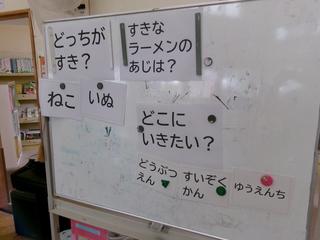 どっちが
すき?
ねこ
いぬ
すきな
ラーメンの
あじは?
どこに
いきたい?
どうぶつ
えん
すいぞく
かん
ゆうえんち